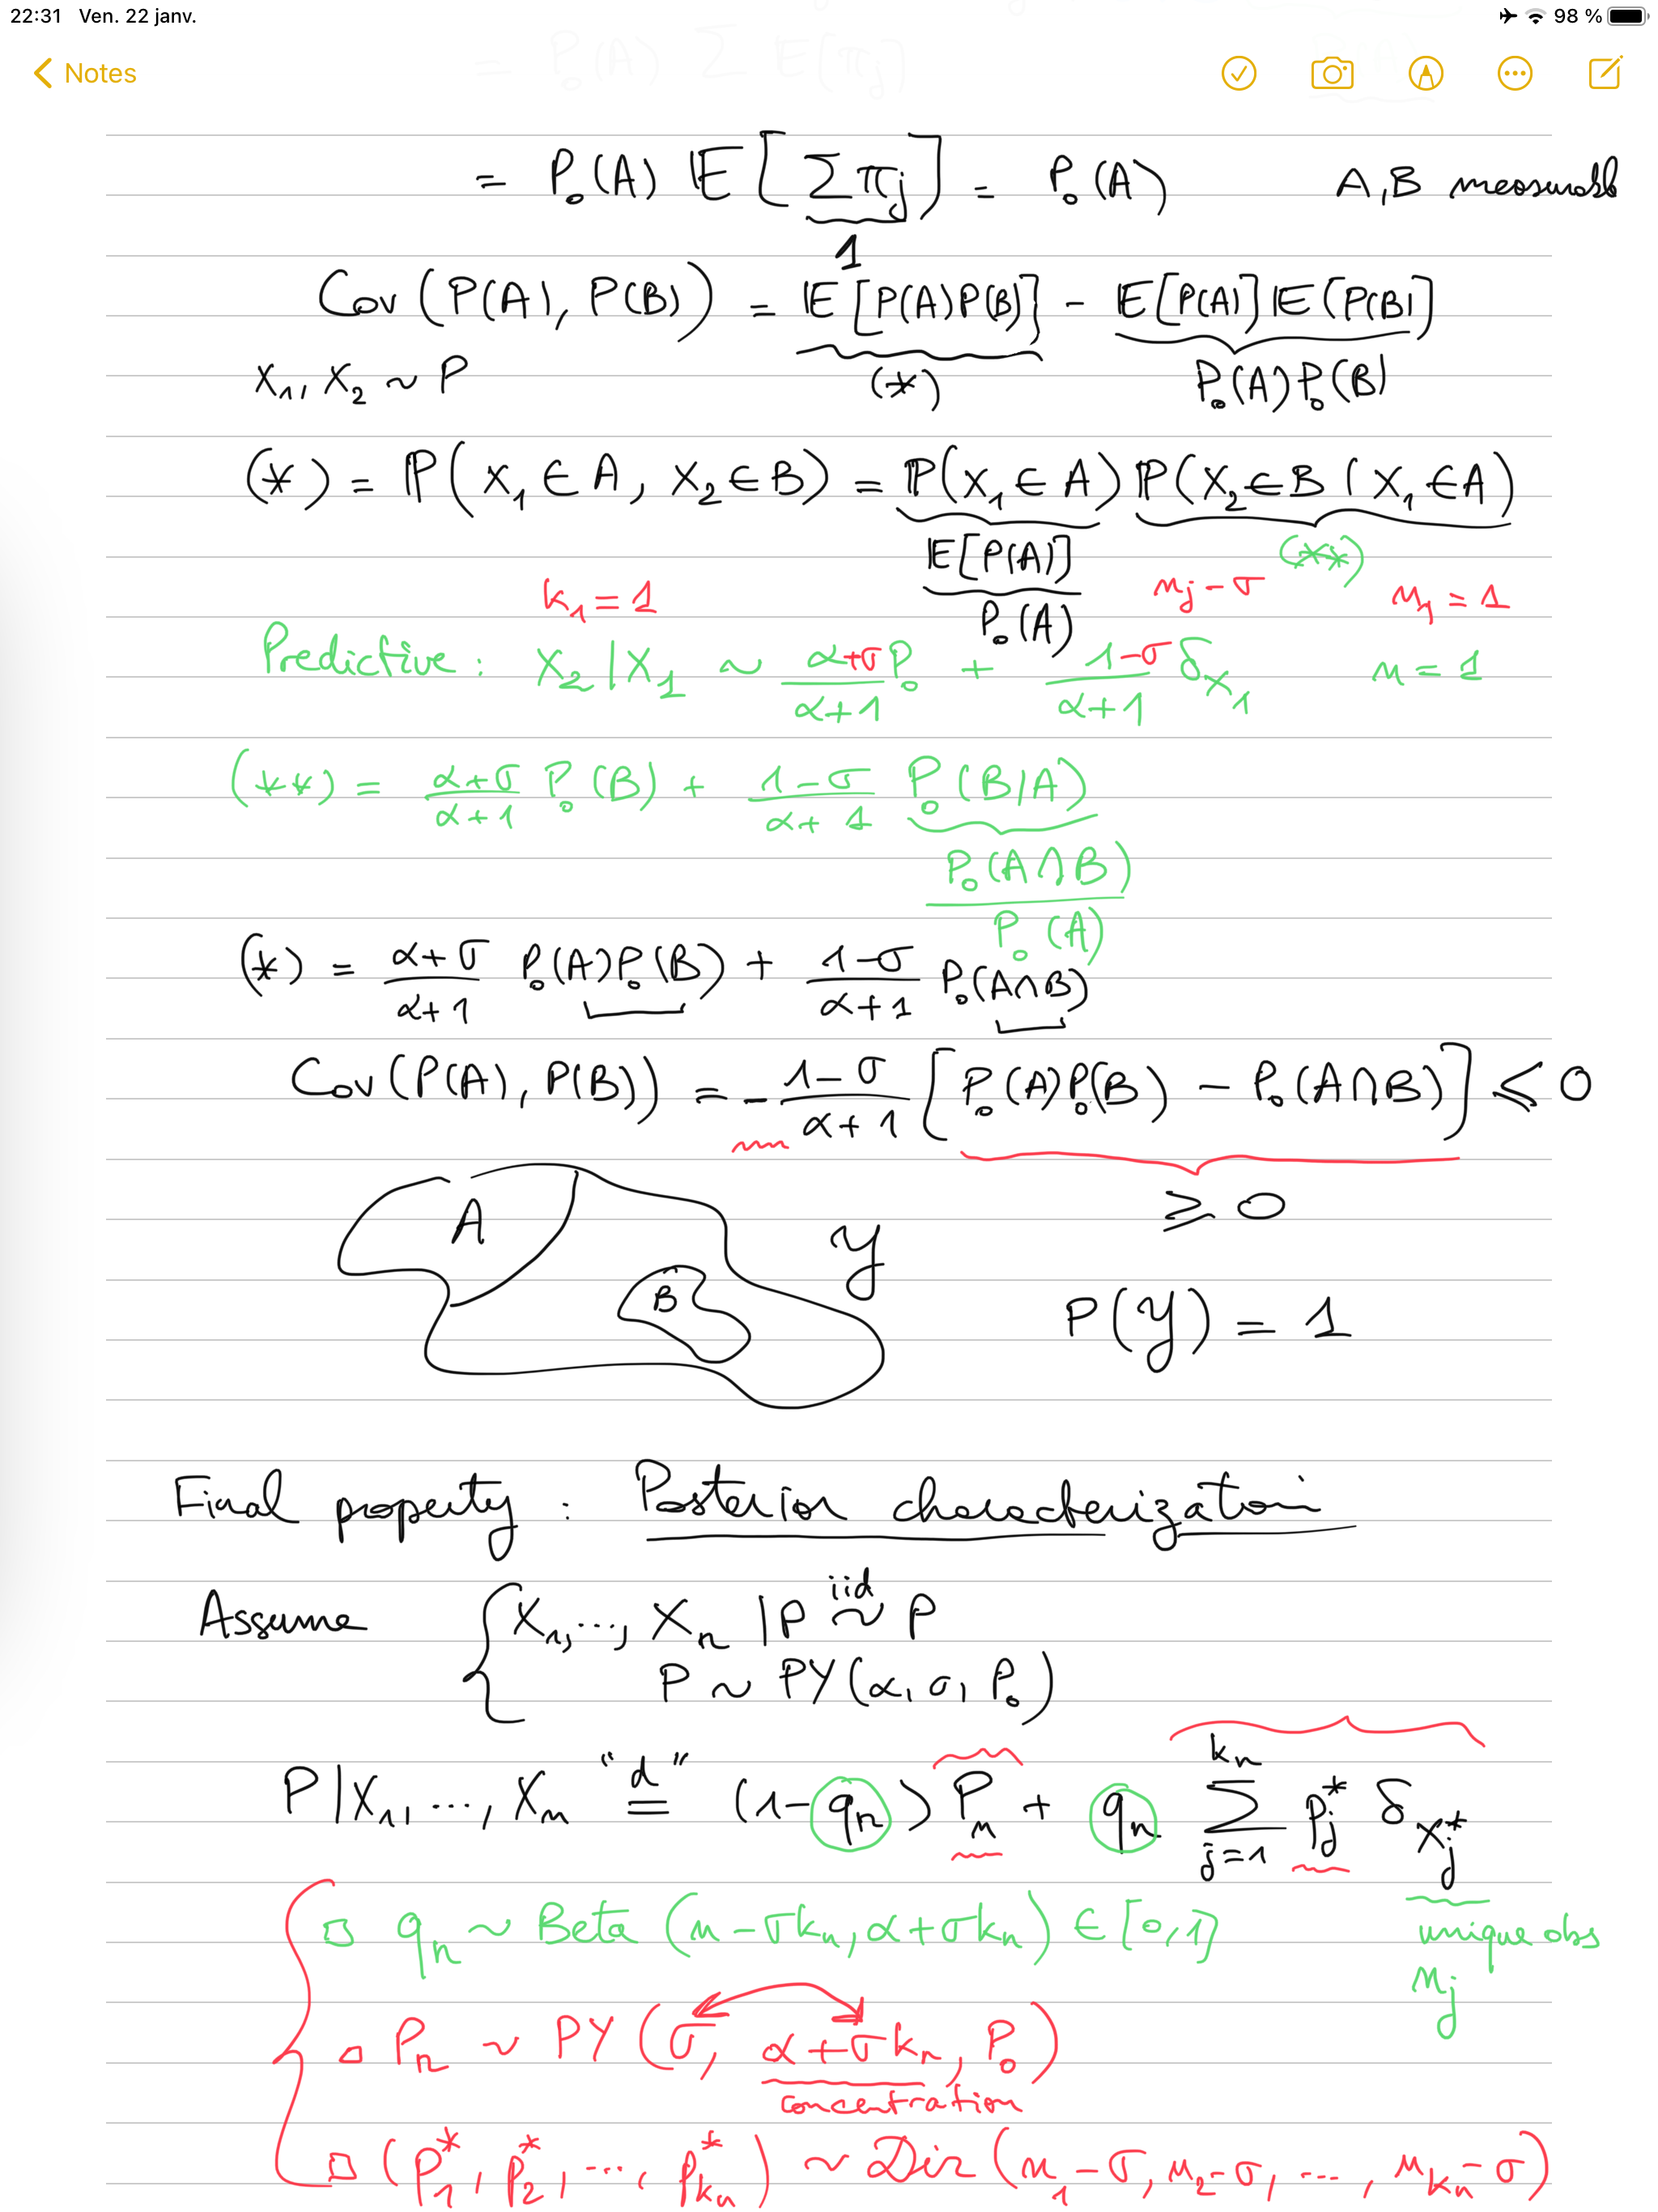 22:31 Ven. 22 janv. 98 %
Notes
= P₀(A) Σ E[πj]
= P₀(A) 𝔼[Σ πj] = P₀(A) A, B measurabl
1
Cov(P(A), P(B)) = 𝔼[P(A)P(B)] - 𝔼[P(A)] 𝔼[P(B)]
X₁, X₂ ~ P (*) P₀(A) P₀(B)
(*) = ℙ(X₁ ∈ A, X₂ ∈ B) = ℙ(X₁ ∈ A) ℙ(X₂ ∈ B | X₁ ∈ A)
𝔼[P(A)] (**)
k₁ = 1 P₀(A) nj - σ n₁ = 1
Predictive : X₂ | X₁ ~ (α+σ)/(α+1) P₀ + (1-σ)/(α+1) δ_X₁ n = 1
(**) = (α+σ)/(α+1) P₀(B) + (1-σ)/(α+1) P₀(B|A)
P₀(A∩B)
P₀(A)
(*) = (α+σ)/(α+1) P₀(A)P₀(B) + (1-σ)/(α+1) P₀(A∩B)
Cov(P(A), P(B)) = - (1-σ)/(α+1) [P₀(A)P₀(B) - P₀(A∩B)] ≤ 0
≥ 0
A B 𝒴
P(𝒴) = 1
Final property : Posterior characterization
Assume { X₁, ..., Xn | P iid ~ P
P ~ PY(α, σ, P₀)
P | X₁, ..., Xn "d" = (1 - qn) Pn + qn Σ_{j=1}^{kn} pj* δ_Xj*
□ qn ~ Beta (n - σkn, α + σkn) ∈ [0,1] unique obs
nj
□ Pn ~ PY(σ, α + σkn, P₀)
concentration
□ (p₁*, p₂*, ..., pkn*) ~ Dir(n₁ - σ, n₂ - σ, ..., nkn - σ)